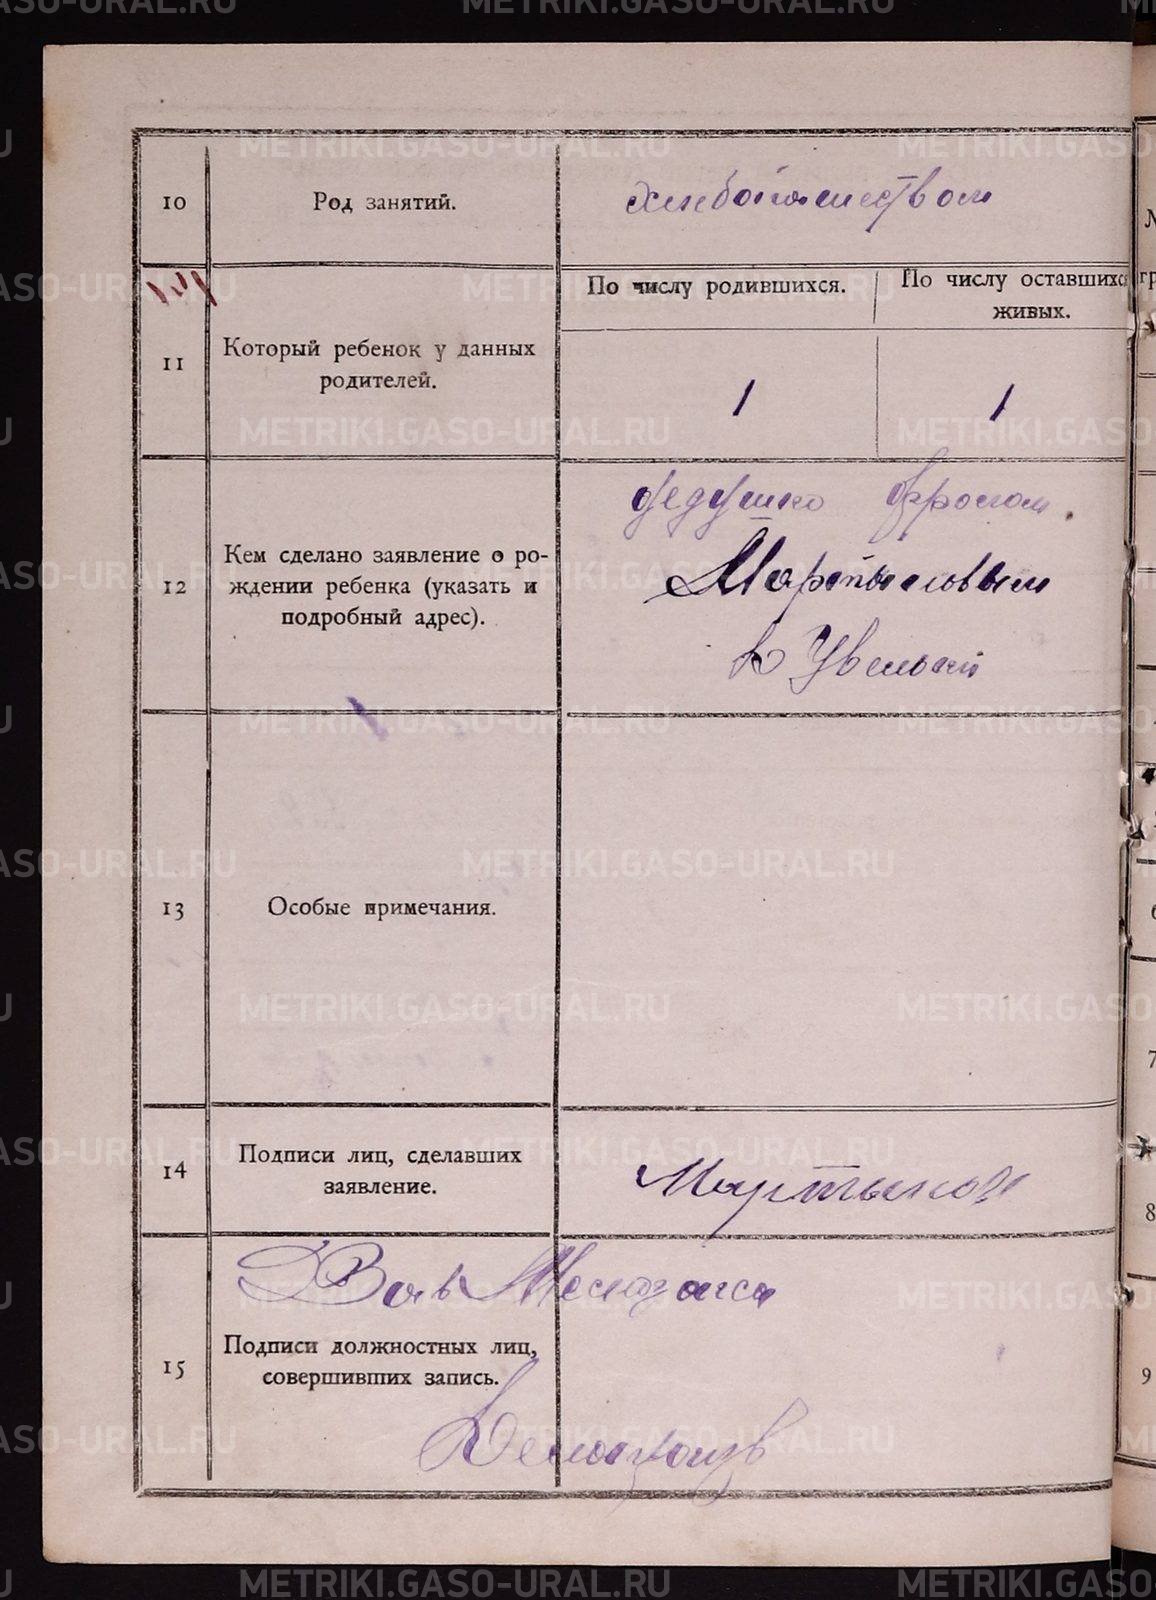 10
Род занятий.
хлебопашеством
11
Который ребенок у данных
родителей.
По числу родившихся.
По числу оставшихся
живых.
1
1
12
Кем сделано заявление о ро-
ждении ребенка (указать и
подробный адрес).
дедушко
Мартыновым
13
Особые примечания.
14
Подписи лиц, сделавших
заявление.
Мартынов
Зав
15
Подписи должностных лиц,
совершивших запись.
8
9
METRIKI.GASO-URAL.RU